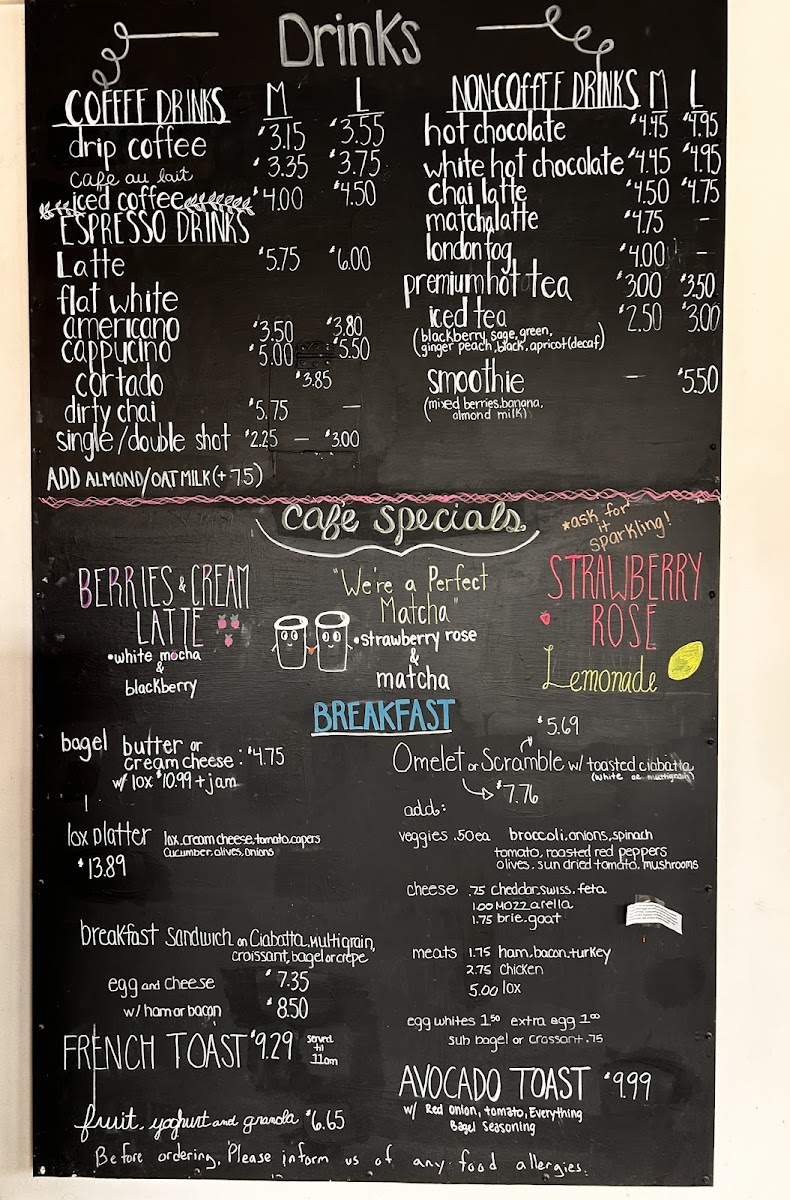 Drinks
COFFEE DRINKS M L
drip coffee $3.15 $3.55
cafe au lait $3.35 $3.75
iced coffee $4.00 $4.50
ESPRESSO DRINKS
Latte $5.75 $6.00
flat white
americano $3.50 $3.80
cappucino $5.00 $5.50
cortado $3.85
dirty chai $5.75 —
single/double shot $2.25 — $3.00
ADD ALMOND/OAT MILK (+.75)
NON-COFFEE DRINKS M L
hot chocolate $4.45 $4.95
white hot chocolate $4.45 $4.95
chai latte $4.50 $4.75
matcha latte $4.75 —
london fog $4.00 —
premium hot tea $3.00 $3.50
iced tea $2.50 $3.00
(blackberry sage, green,
ginger peach, black, apricot(decaf)
smoothie — $5.50
(mixed berries, banana,
almond milk)
cafe specials
BERRIES & CREAM
LATTE
•white mocha
&
blackberry
"We're a Perfect
Matcha"
•strawberry rose
&
matcha
*ask for
it
sparkling!
STRAWBERRY
ROSE
Lemonade
BREAKFAST
bagel butter or
cream cheese: $4.75
w/ lox $10.99 + jam
lox platter lox, cream cheese, tomato, capers
cucumber, olives, onions
$13.89
breakfast sandwich on Ciabatta, Multigrain,
croissant, bagel or crepe
egg and cheese $7.35
w/ ham or bacon $8.50
FRENCH TOAST $9.29 served
til
11am
fruit, yoghurt and granola $6.65
$5.69
Omelet or Scramble w/ toasted ciabatta
(white or multigrain)
$7.76
add:
veggies .50ea broccoli, onions, spinach
tomato, roasted red peppers
olives, sun dried tomato, mushrooms
cheese .75 cheddar, swiss, feta
1.00 mozzarella
1.75 brie, goat
meats 1.75 ham, bacon, turkey
2.75 chicken
5.00 lox
egg whites 1.50 extra egg 1.00
sub bagel or crossant .75
AVOCADO TOAST $9.99
w/ Red onion, tomato, Everything
Bagel Seasoning
Before ordering, Please inform us of any food allergies.